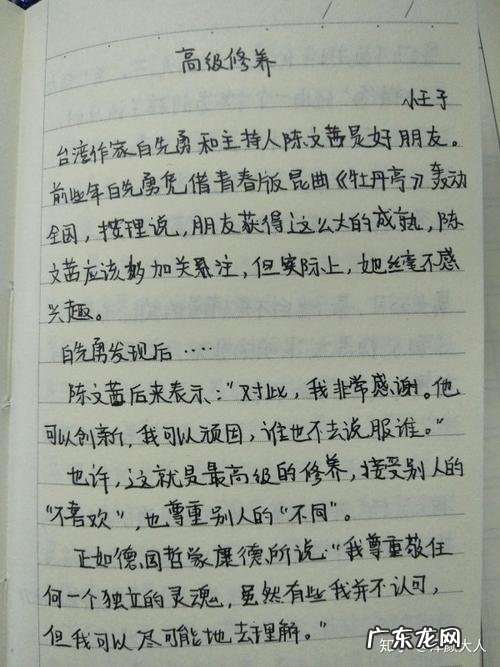 高级修养
小王子
台湾作家白先勇和主持人陈文茜是好朋友。
前些年白先勇凭借青春版昆曲《牡丹亭》轰动
全国，按理说，朋友获得这么大的成就，陈
文茜应该多加关注，但实际上，她丝毫不感
兴趣。
白先勇发现后……
陈文茜后来表示：“对此，我非常感谢。他
可以创新，我可以顽固，谁也不去说服谁。”
也许，这就是最高级的修养，接受别人的
“不喜欢”，也尊重别人的“不同”。
正如德国哲学家康德所说：“我尊重敬任
何一个独立的灵魂，虽然有些我并不认可，
但我可以尽可能地去理解。”
知乎 @洋颜大人
广东龙网